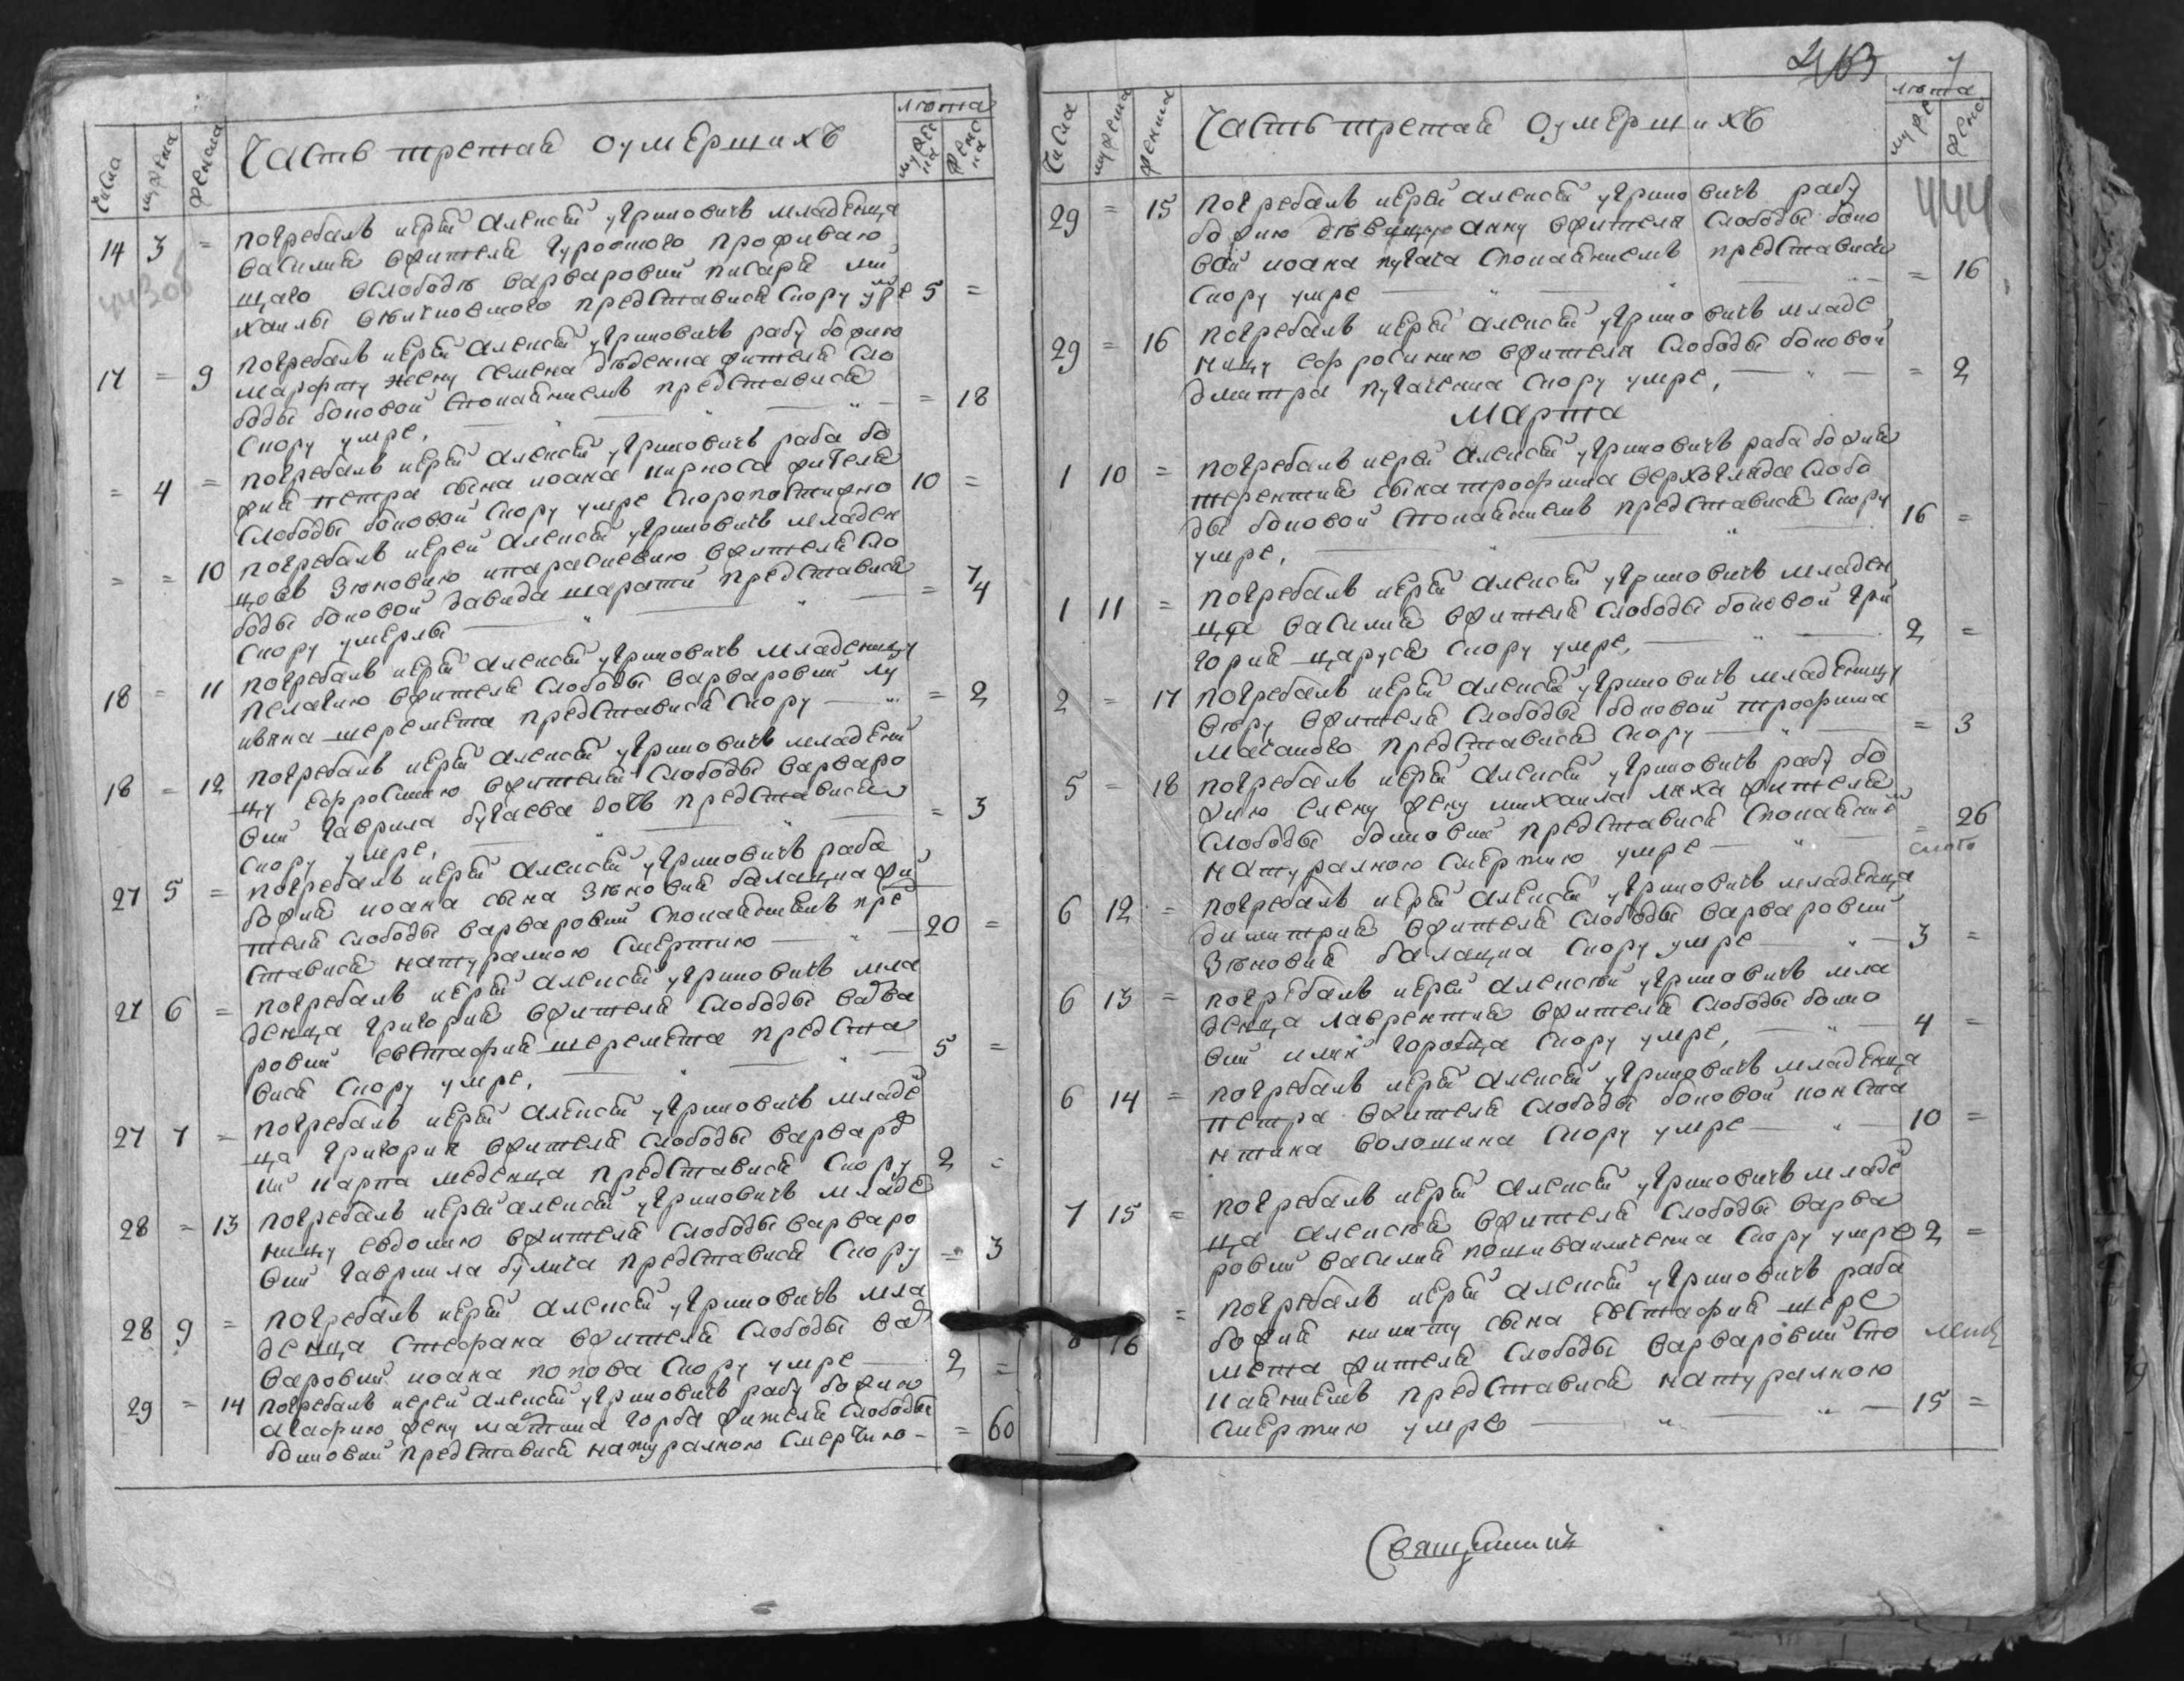 числа мужеска женска Часть третая оумершихъ лета мужеска женска
14 3 = погребалъ иерей алексей угриновичъ младенца
василия жителя проживаю
щаго вслободе варваровки писаря ми
хаилы представися скору умре 5 =
17 = 9 погребалъ иерей алексей угриновичъ рабу божию
марфту жену семена деденка жителя сло
боды боковой спокаяниемъ представися
скору умре, = 18
= 4 = погребалъ иерей алексей угриновичъ раба бо
жия петра сына иоана кирноса жителя
слободы боковой скору умре скоропостижно 10 =
= = 10 погребалъ иерей алексей угриновичъ младен
цовъ зеновию ипарасковию жителя сло
боды боковой давида шарапти представися 7
скору умерлы = 4
18 = 11 погребалъ иерей алексей угриновичъ младеницу
пелагию жителя слободы варваровки лу
кияна шеремета представися скору = 2
18 = 12 погребалъ иерей алексей угриновичъ младени
цу ефросинию жителя слободы варваро
вки гаврила бугаева дочь представися
скору умре, = 3
27 5 = погребалъ иерей алексей угриновичъ раба
божия иоана сына зеновия балацка жи
теля слободы варваровки спокаяниемъ пре
ставися натуралною смертию 20 =
27 6 = погребалъ иерей алексей угриновичъ мла
денца григория жителя слободы варва
ровки евстафия шеремета предста
вися скору умре, 5 =
27 7 = погребалъ иерей алексей угриновичъ младе
ца григория жителя слободы варваров
ки карпа меденца представися скору 2 =
28 = 13 погребалъ иерей алексей угриновичъ младе
ницу евдокию жителя слободы варваро
вки гавриила булига представися скору = 3
28 9 = погребалъ иерей алексей угриновичъ мла
денца стефана жителя слободы вар
варовки иоана попова скору умре 2 =
29 = 14 погребалъ иерей алексей угриновичъ рабу божию
агафию жену мартина горба жителя слободы
боковки представися натуралною смертию = 60
7
числа мужеска женска Часть третая оумершихъ лета муже женс
444
29 = 15 погребалъ иерей алексей угриновичъ рабу
божию девицу анну жителя слободы боко
вой иоана пугача спокаяниемъ представися
скору умре = 16
29 = 16 погребалъ иерей алексей угриновичъ младе
ницу ефросинию жителя слободы боковой
дмитра пугаченка скору умре, = 2
Марта
1 10 = погребалъ иерей алексей угриновичъ раба божия
терентия сына трофима верхогляда слобо
ды боковой спокаяниемъ представися скору
умре, 16 =
1 11 = погребалъ иерей алексей угриновичъ младен
ца василия жителя слободы боковой гри
гория царуся скору умре, 2 =
2 = 17 погребалъ иерей алексей угриновичъ младеницу
веру жителя слободы боковой трофима
магамого представися скору = 3
5 = 18 погребалъ иерей алексей угриновичъ рабу бо
жию елену жену михаила ляха жителя
слободы боковки представися спокаяние
натуралною смертию умре = 26
6 12 = погребалъ иерей алексей угриновичъ младенца
димитрия жителя слободы варваровки
зеновия балацка скору умре 3 =
6 13 = погребалъ иерей алексей угриновичъ мла
денца лаврентия жителя слободы боко
вки илии горобца скору умре, 4 =
6 14 = погребалъ иерей алексей угриновичъ младенца
петра жителя слободы боковой конста
нтина волошина скору умре 10 =
7 15 = погребалъ иерей алексей угриновичъ младе
ца алексея жителя слободы варва
ровки василия скору умре 2 =
8 16 = погребалъ иерей алексей угриновичъ раба
божия никиту сына евстафия шере
мета жителя слободы варваровки спо
каяниемъ представися натуралною
смертию умре 15 =
Священникъ